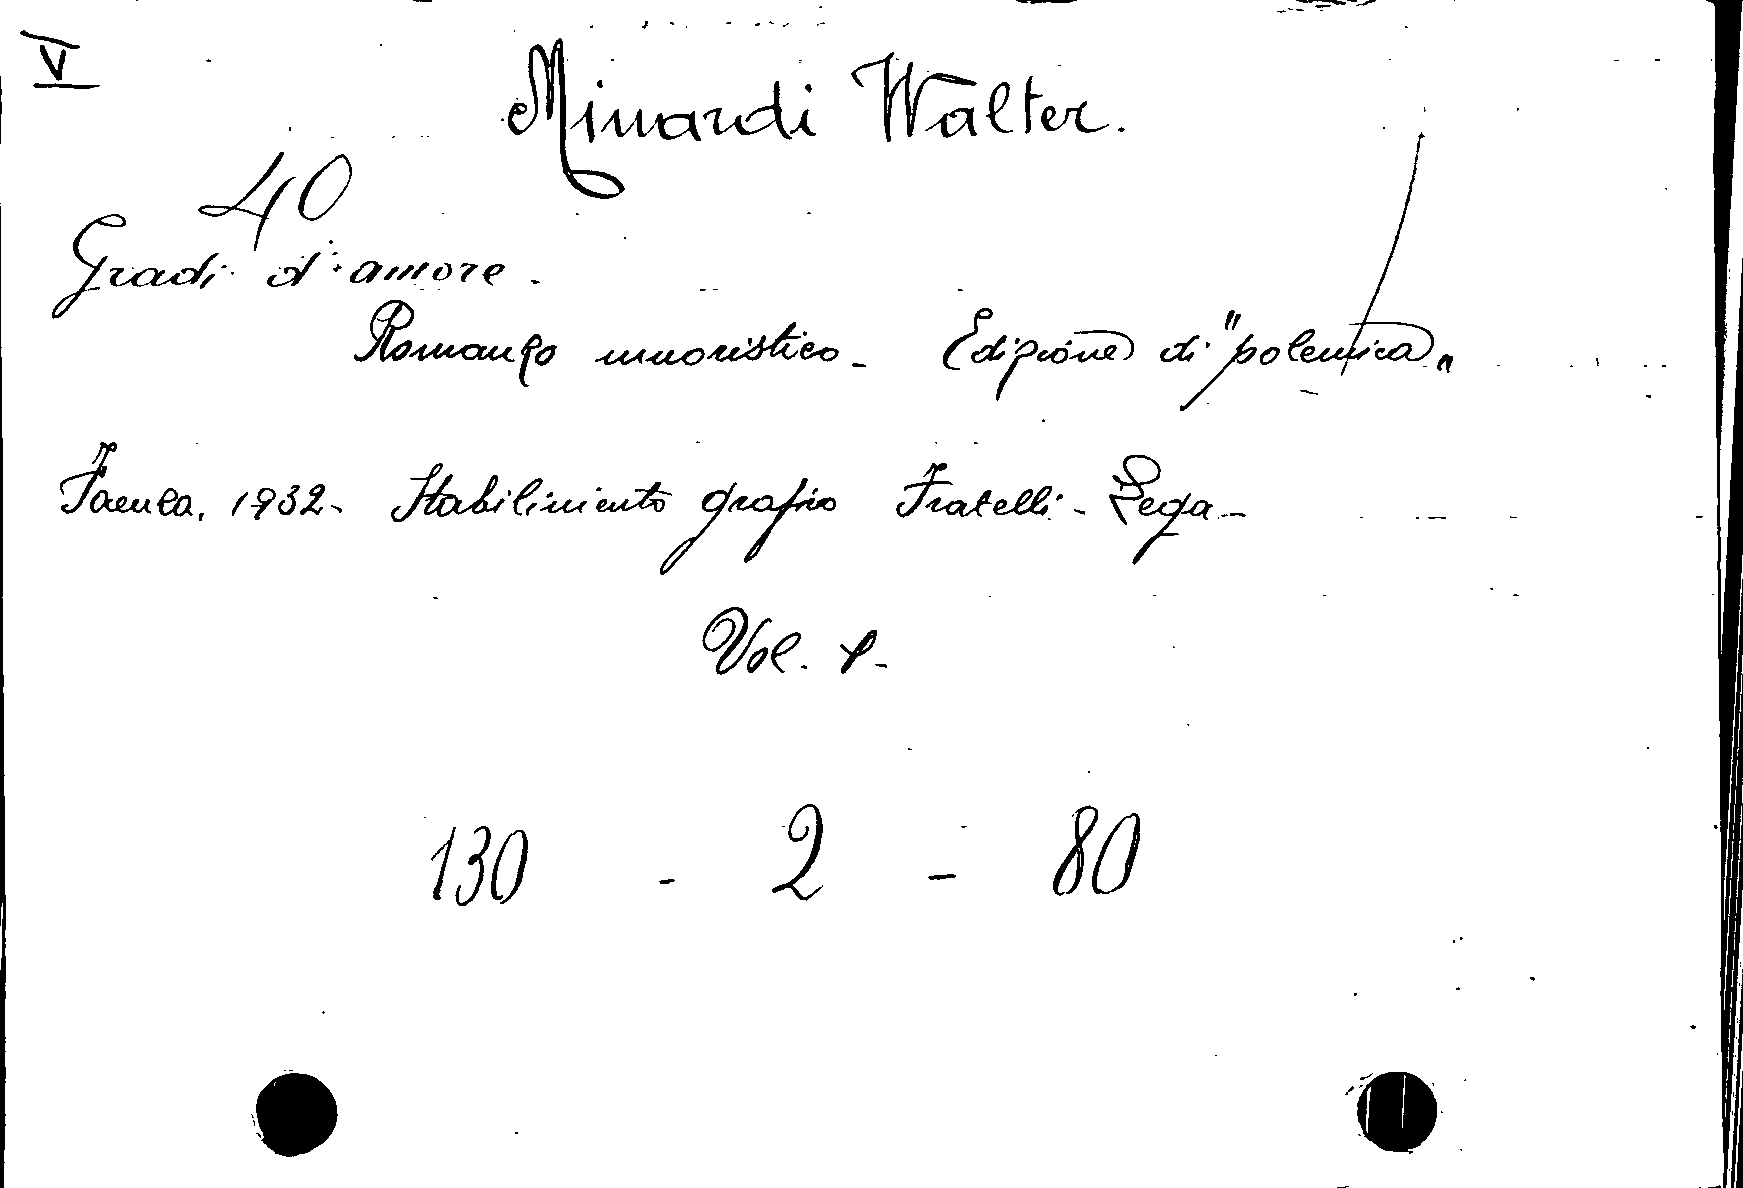 V
Minardi Walter.
40
Gradi d'amore.
Romanzo umoristico - Edizione di "polemica"
Faenza, 1932 - Stabilimento grafico Fratelli - Lega -
Vol. 1 -
130 - 2 - 80